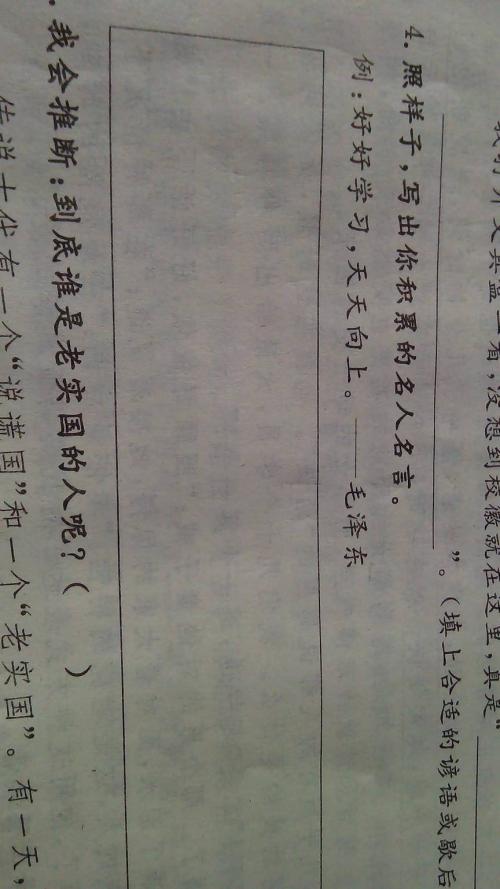 我打开文具盒一看，没想到校徽就在这里，真是“
”。（填上合适的谚语或歇后
4. 照样子，写出你积累的名人名言。
例：好好学习，天天向上。——毛泽东
我会推断：到底谁是老实国的人呢？（ ）
传说古代有一个“说谎国”和一个“老实国”。有一天，